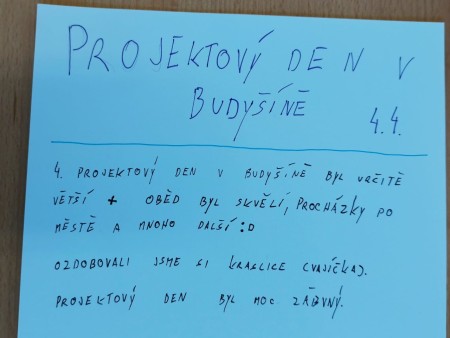 PROJEKTOVÝ DEN V
BUDYŠÍNĚ 4.4.
4. PROJEKTOVÝ DEN V BUDYŠÍNĚ BYL URČITĚ
VĚTŠÍ + OBĚD BYL SKVĚLÍ, PROCHÁZKY PO
MĚSTĚ A MNOHO DALŠÍ :D
OZDOBOVALI JSME SI KRASLICE (VAJÍČKA).
PROJEKTOVÝ DEN BYL MOC ZÁBVNÝ.